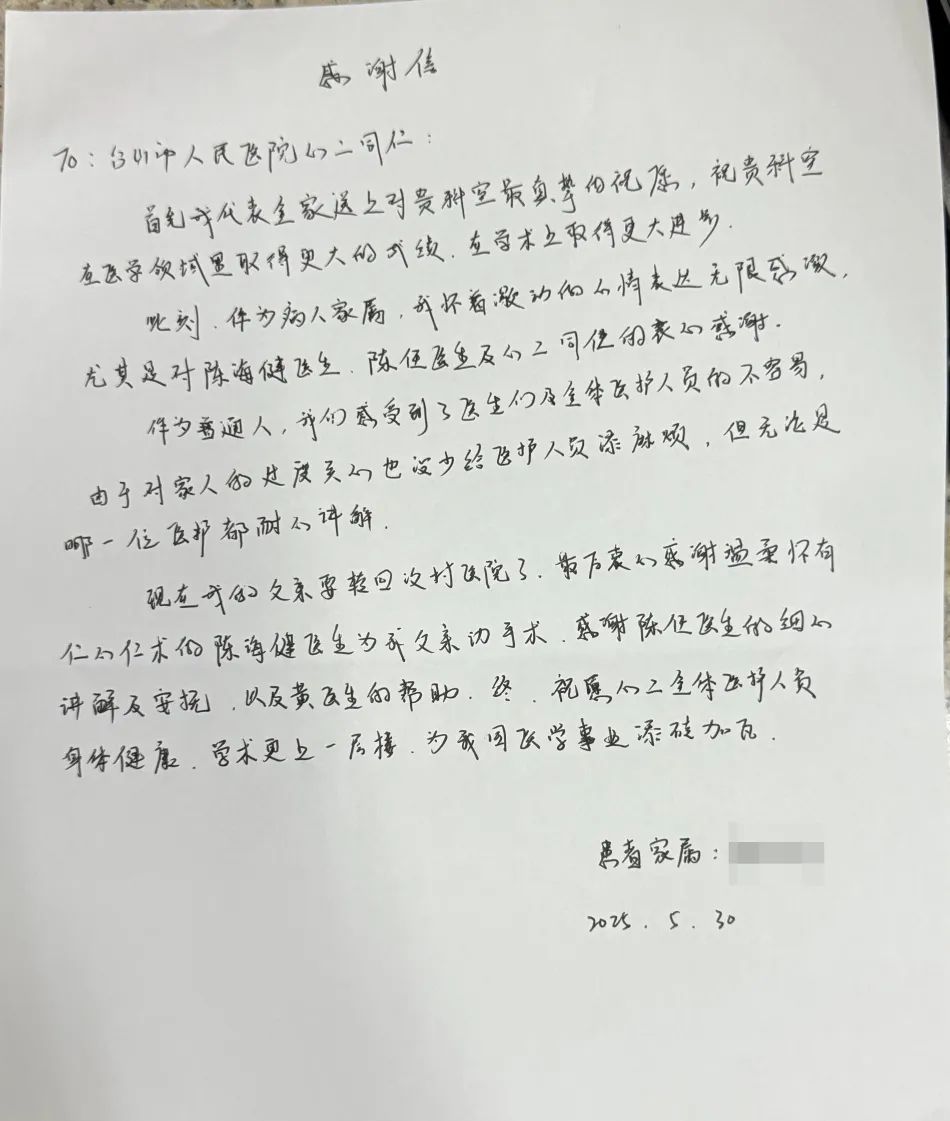 感谢信
TO：台州市人民医院心二同仁：
首先我代表全家送上对贵科室最真挚的祝愿，祝贵科室
在医学领域里取得更大的成绩．在学术上取得更大进步．
此刻．作为病人家属，我怀着激动的心情表达无限感激，
尤其是对陈海健医生．陈伍医生及心二同仁的衷心感谢．
作为普通人，我们感受到了医生们及全体医护人员的不容易，
由于对家人的过度关心也没少给医护人员添麻烦，但无论是
哪一位医护都耐心讲解．
现在我的父亲要转回次村医院了．最后衷心感谢温柔怀有
仁心仁术的陈海健医生为我父亲动手术．感谢陈伍医生的细心
讲解及安抚．以及黄医生的帮助．终．祝愿心二全体医护人员
身体健康．学术更上一层楼．为我国医学事业添砖加瓦．
患者家属：
2025．5．30